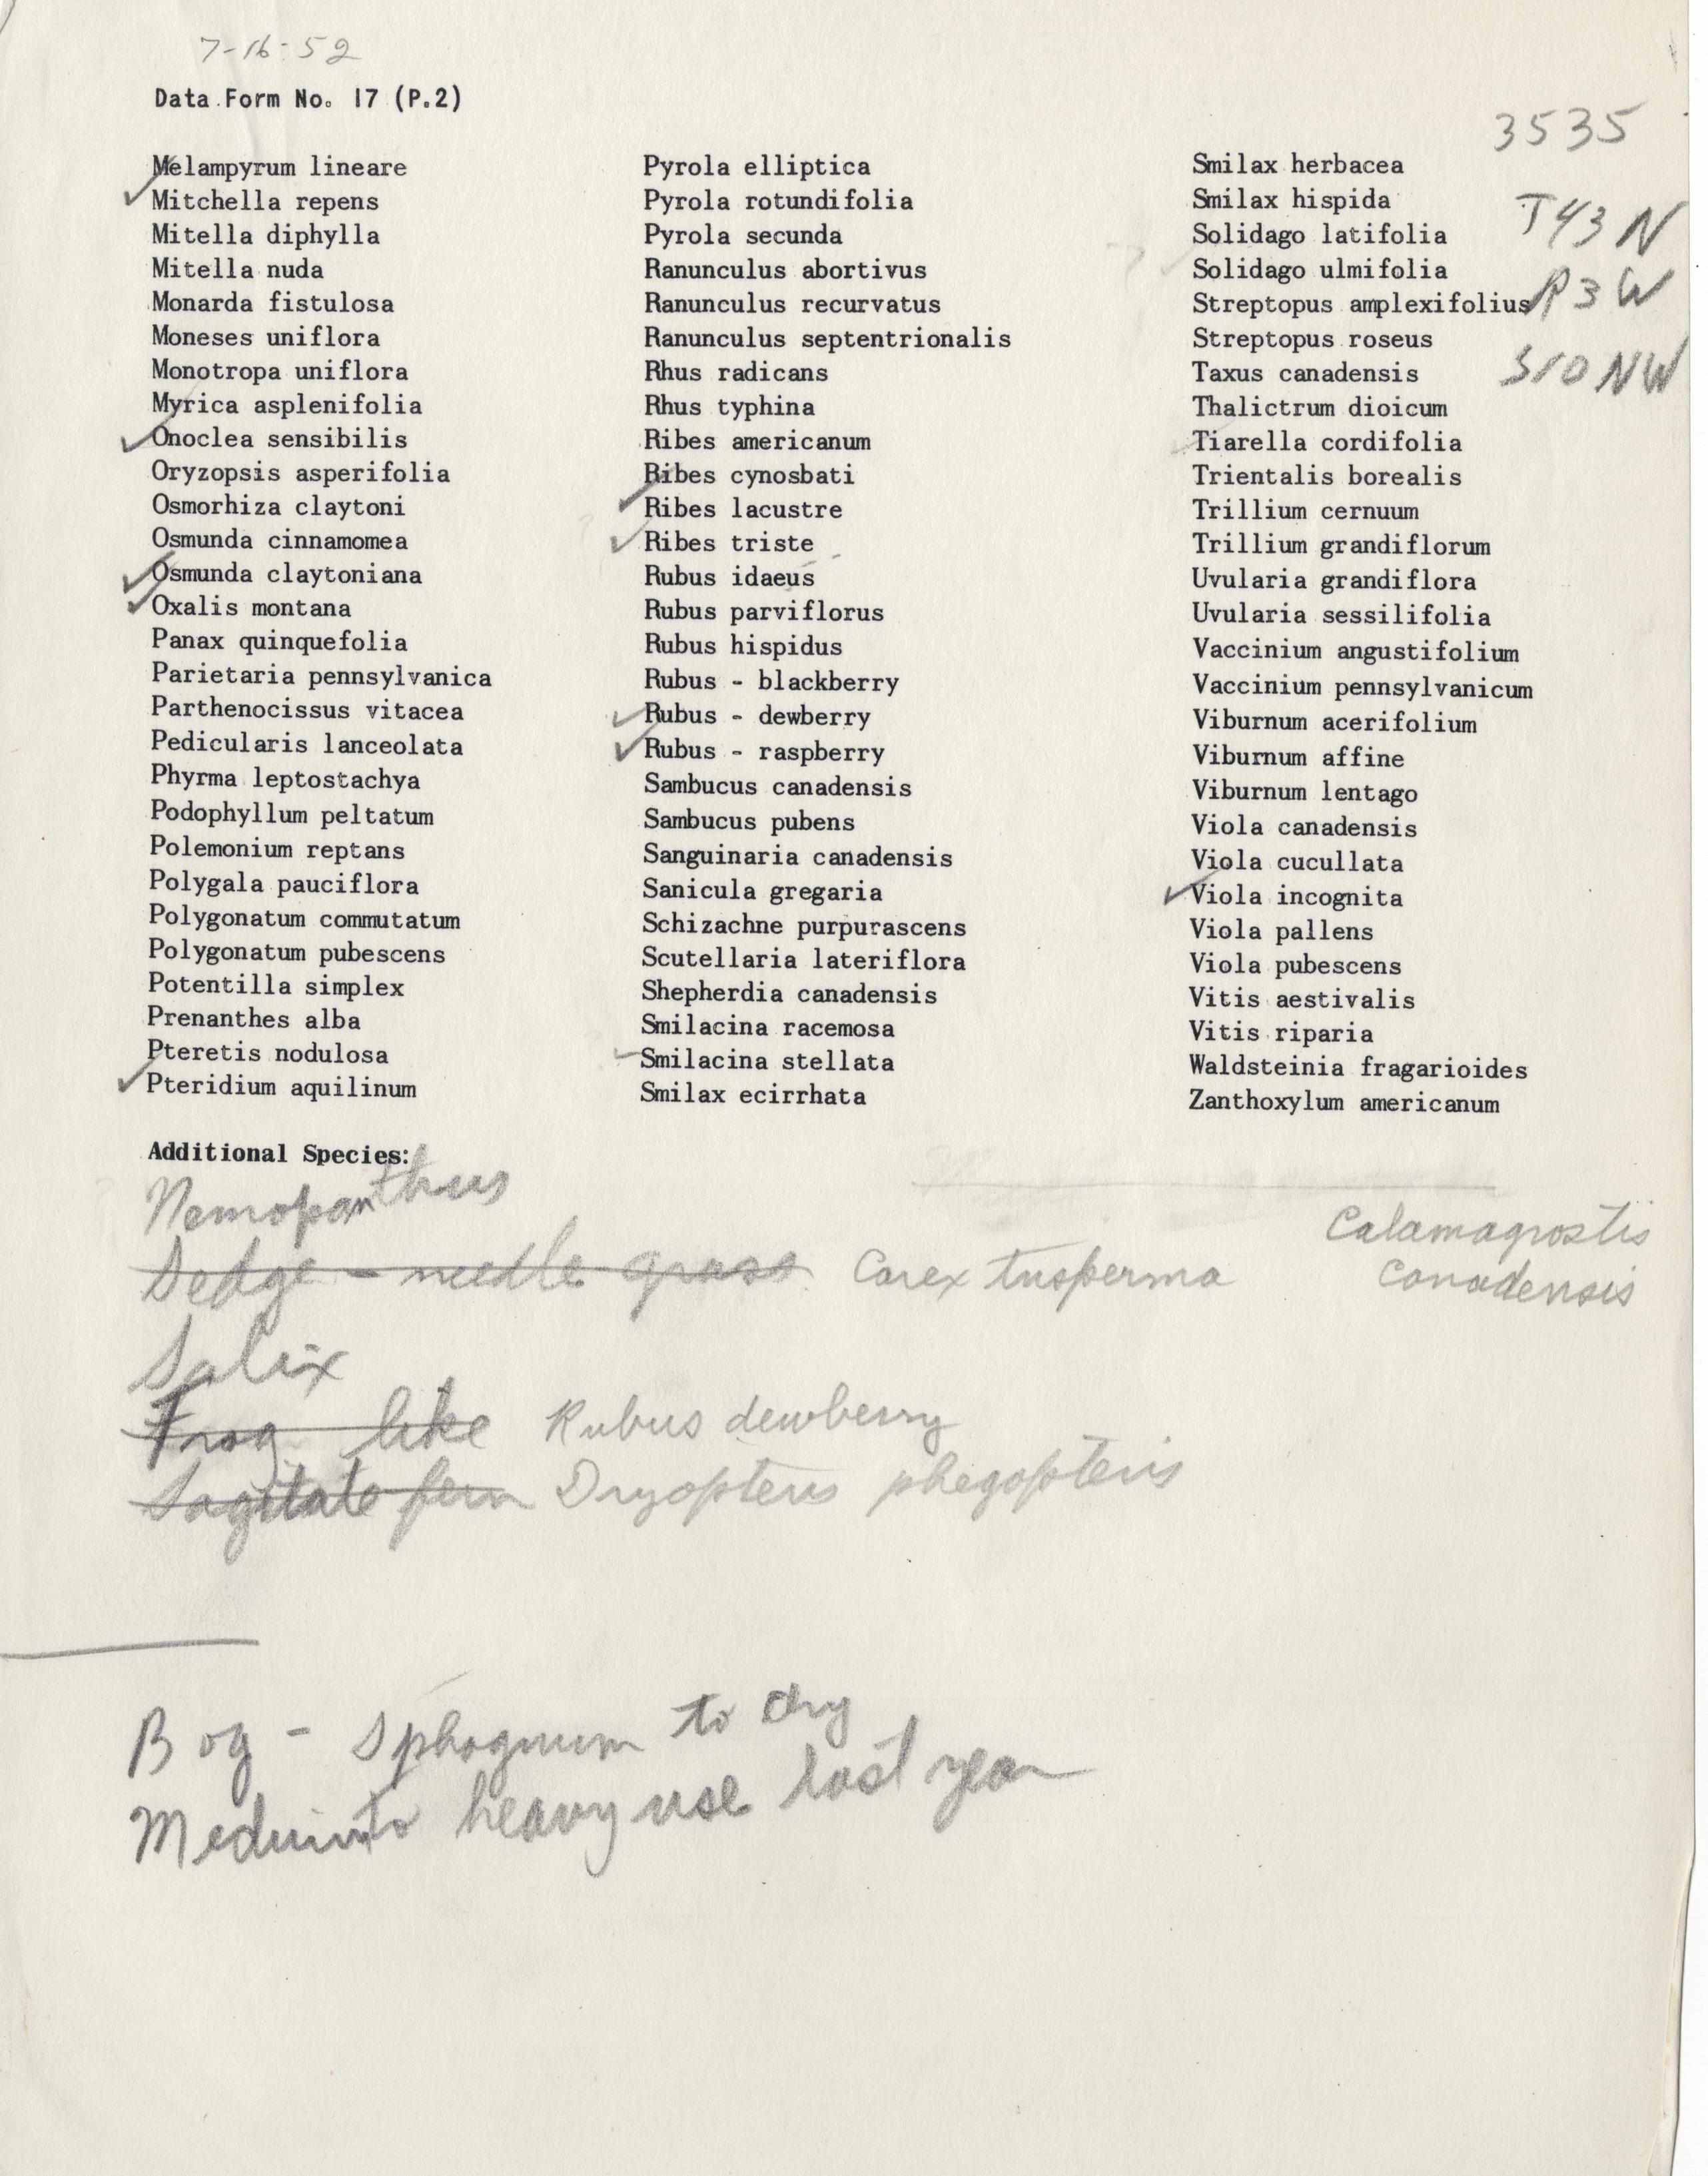 7-16-52
Data Form No. 17 (P.2)
3535
T43N
R3W
S10NW
Melampyrum lineare
✓ Mitchella repens
Mitella diphylla
Mitella nuda
Monarda fistulosa
Moneses uniflora
Monotropa uniflora
Myrica asplenifolia
✓ Onoclea sensibilis
Oryzopsis asperifolia
Osmorhiza claytoni
Osmunda cinnamomea
✓ Osmunda claytoniana
✓ Oxalis montana
Panax quinquefolia
Parietaria pennsylvanica
Parthenocissus vitacea
Pedicularis lanceolata
Phyrma leptostachya
Podophyllum peltatum
Polemonium reptans
Polygala pauciflora
Polygonatum commutatum
Polygonatum pubescens
Potentilla simplex
Prenanthes alba
Pteretis nodulosa
✓ Pteridium aquilinum
Pyrola elliptica
Pyrola rotundifolia
Pyrola secunda
Ranunculus abortivus
Ranunculus recurvatus
Ranunculus septentrionalis
Rhus radicans
Rhus typhina
Ribes americanum
Ribes cynosbati
✓ Ribes lacustre
✓ Ribes triste
Rubus idaeus
Rubus parviflorus
Rubus hispidus
Rubus - blackberry
✓ Rubus - dewberry
✓ Rubus - raspberry
Sambucus canadensis
Sambucus pubens
Sanguinaria canadensis
Sanicula gregaria
Schizachne purpurascens
Scutellaria lateriflora
Shepherdia canadensis
Smilacina racemosa
✓ Smilacina stellata
Smilax ecirrhata
Smilax herbacea
Smilax hispida
Solidago latifolia
Solidago ulmifolia
Streptopus amplexifolius
Streptopus roseus
Taxus canadensis
Thalictrum dioicum
Tiarella cordifolia
Trientalis borealis
Trillium cernuum
Trillium grandiflorum
Uvularia grandiflora
Uvularia sessilifolia
Vaccinium angustifolium
Vaccinium pennsylvanicum
Viburnum acerifolium
Viburnum affine
Viburnum lentago
Viola canadensis
Viola cucullata
✓ Viola incognita
Viola pallens
Viola pubescens
Vitis aestivalis
Vitis riparia
Waldsteinia fragarioides
Zanthoxylum americanum
Additional Species:
Nemopanthus
Sedge - needle grass Carex trisperma
Calamagrostis
canadensis
Salix
Frog like Rubus dewberry
Sagitate fern Dryopteris phegopteris
Bog - Sphagnum to dry
Medium to heavy use last year